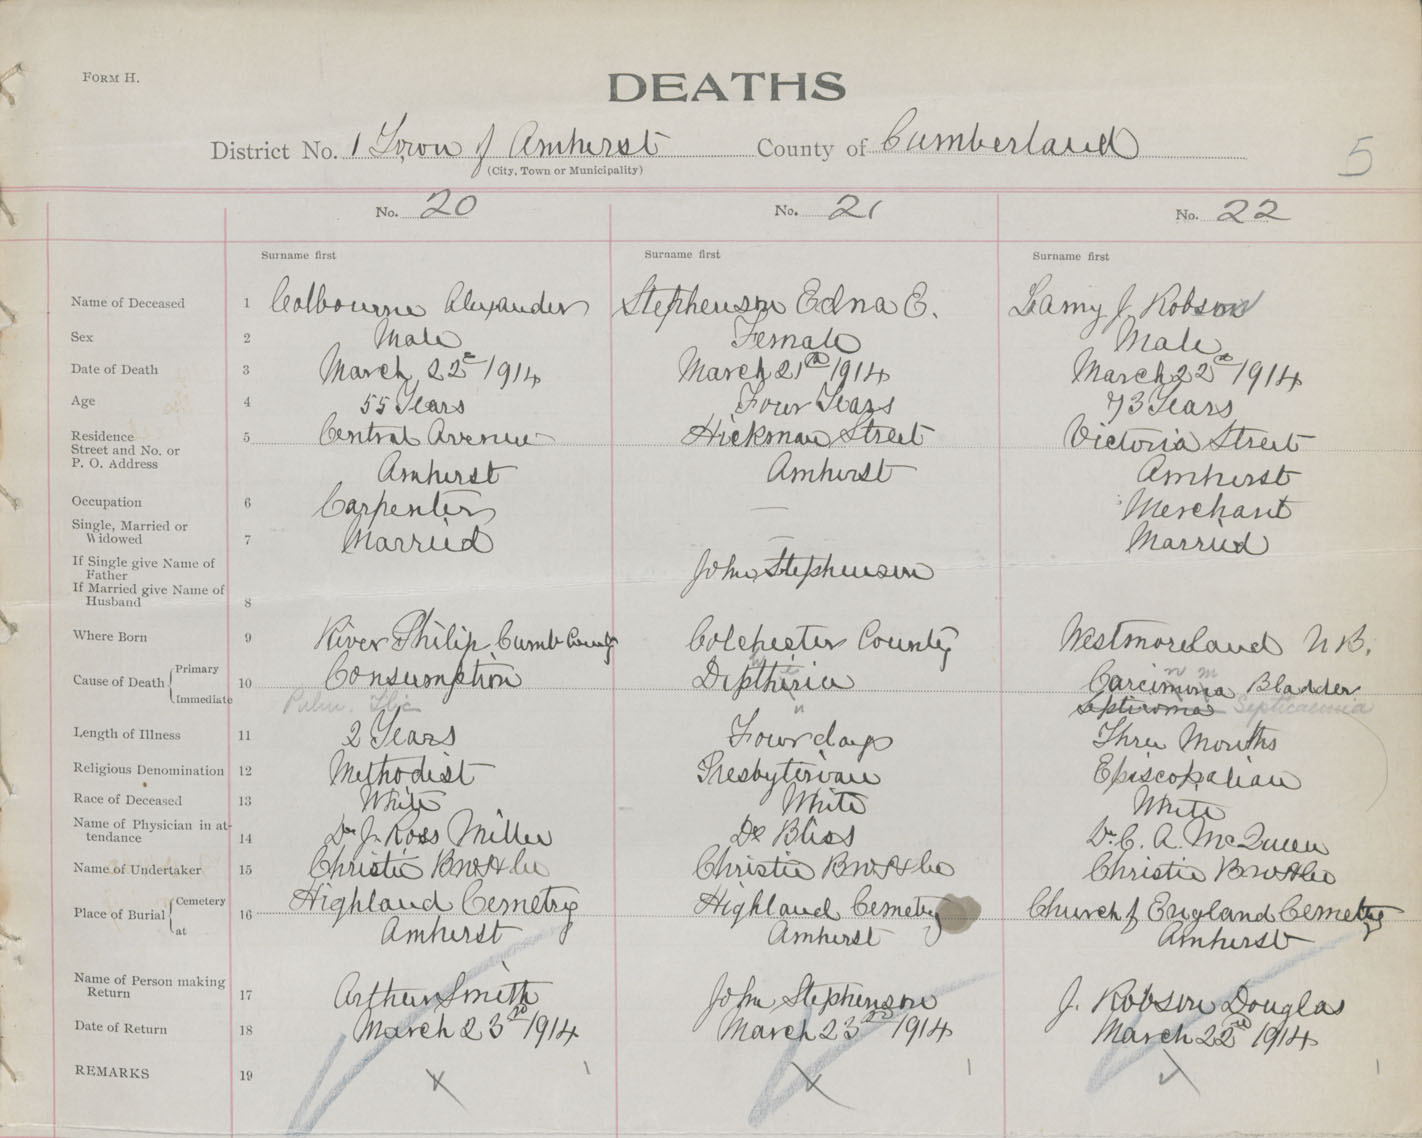 FORM H.
DEATHS
District No. 1 Town of Amherst County of Cumberland
(City, Town or Municipality)
5
No. 20 No. 21 No. 22
Surname first Surname first Surname first
Name of Deceased 1 Colbourne Alexander Stephenson Edna E. Lamy J. Robson
Sex 2 Male Female Male
Date of Death 3 March 22nd 1914 March 21st 1914 March 22nd 1914
Age 4 55 Years Four Years 73 Years
Residence Street and No. or P. O. Address 5 Central Avenue Hickman Street Victoria Street
Amherst Amherst Amherst
Occupation 6 Carpenter — Merchant
Single, Married or Widowed 7 Married — Married
If Single give Name of Father John Stephenson
If Married give Name of Husband 8
Where Born 9 River Philip Cumb County Colchester County Westmoreland N B.
Cause of Death Primary 10 Consumption Diptheria Carcinoma Bladder
Immediate Pulm. Tbc Septicaemia
Length of Illness 11 2 Years Four days Three Months
Religious Denomination 12 Methodist Presbyterian Episcopalian
Race of Deceased 13 White White White
Name of Physician in attendance 14 Dr J. Ross Miller Dr Bliss Dr C. A. McQueen
Name of Undertaker 15 Christie Bros & Co Christie Bros & Co Christie Bros & Co
Place of Burial Cemetery 16 Highland Cemetry Highland Cemetry Church of England Cemetry
at Amherst Amherst Amherst
Name of Person making Return 17 Arthur Smith John Stephenson J. Robson Douglas
Date of Return 18 March 23rd 1914 March 23rd 1914 March 22nd 1914
REMARKS 19